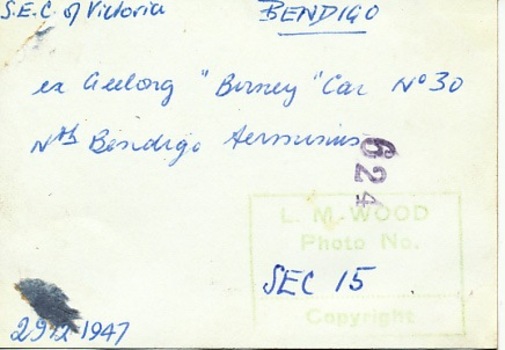 S.E.C. of Victoria BENDIGO
ex Geelong "Birney" Car No 30
Nth Bendigo Terminus
624
L. M. WOOD
Photo No.
SEC 15
Copyright
1947